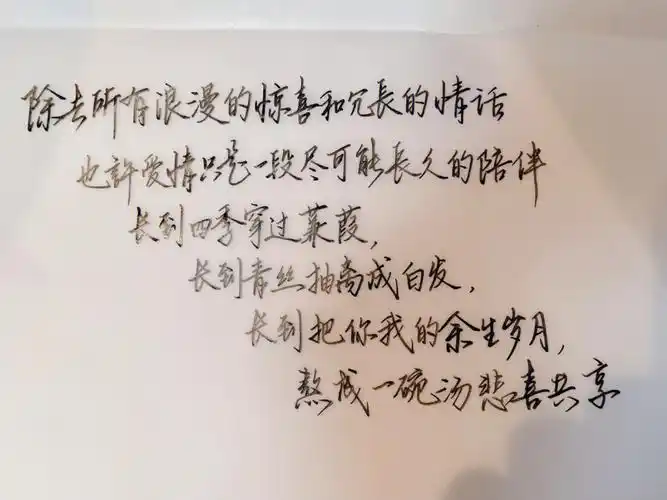 除去所有浪漫的惊喜和冗長的情话
也許爱情只是一段尽可能長久的陪伴
长到四季穿过蒹葭，
长到青丝抽离成白发，
长到把你我的余生岁月，
熬成一碗汤悲喜共享